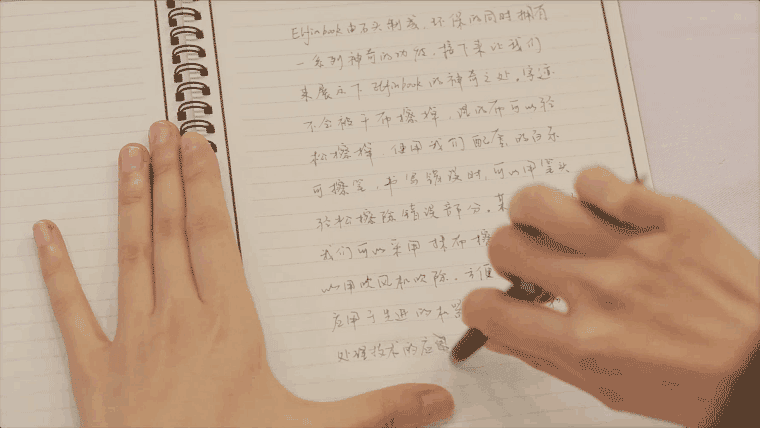 Elfinbook由石头制成,环保的同时拥有
一系列神奇的功能,接下来让我们
来展示下Elfinbook的神奇之处。字迹
不会被干布擦掉,湿的布可以轻
松擦掉,使用我们配套的百乐
可擦笔,书写错误时,可以用笔头
轻松擦除错误部分。某
我们可以采用抹布擦
以用吹风机吹除。方便
应用于先进的
处理技术的应